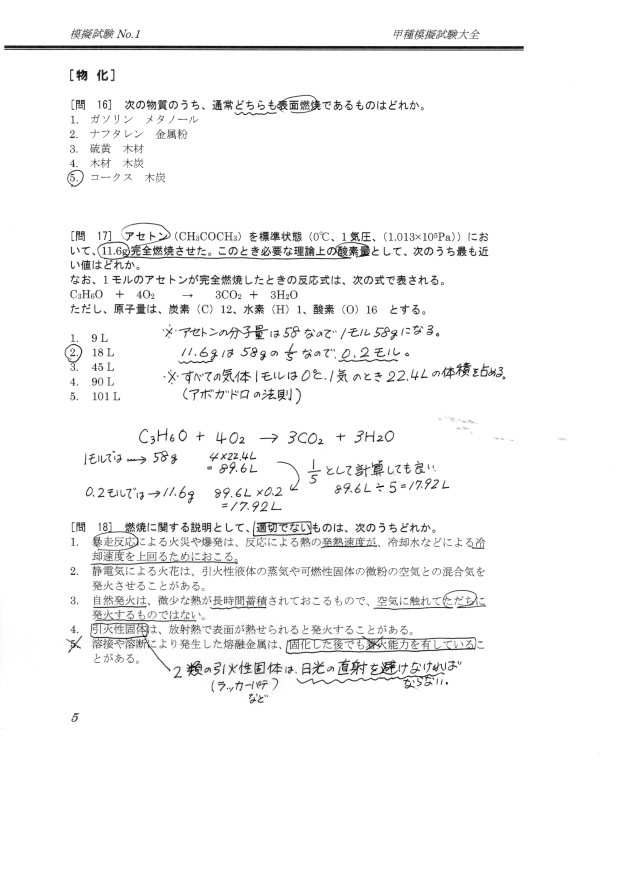 模擬試験 No.1
甲種模擬試験大全
[物 化]
[問 16] 次の物質のうち、通常どちらも表面燃焼であるものはどれか。
1. ガソリン メタノール
2. ナフタレン 金属粉
3. 硫黄 木材
4. 木材 木炭
5. コークス 木炭
[問 17] アセトン (CH₃COCH₃) を標準状態 (0℃、1気圧、(1.013×10⁵Pa)) にお
いて、11.6g完全燃焼させた。このとき必要な理論上の酸素量として、次のうち最も近
い値はどれか。
なお、1モルのアセトンが完全燃焼したときの反応式は、次の式で表される。
C₃H₆O + 4O₂ → 3CO₂ + 3H₂O
ただし、原子量は、炭素 (C) 12、水素 (H) 1、酸素 (O) 16 とする。
1. 9 L
2. 18 L
3. 45 L
4. 90 L
5. 101 L
※アセトンの分子量は58なので1モル58gになる。
11.6gは58gの1/5なので、0.2モル。
※すべての気体1モルは0℃、1気のとき22.4Lの体積を占める。
(アボガドロの法則)
C₃H₆O + 4O₂ → 3CO₂ + 3H₂O
1モルでは→58g 4×22.4L
=89.6L
1/5として計算しても良い
89.6L÷5=17.92L
0.2モルでは→11.6g 89.6L×0.2
=17.92L
[問 18] 燃焼に関する説明として、適切でないものは、次のうちどれか。
1. 暴走反応による火災や爆発は、反応による熱の発熱速度が、冷却水などによる冷
却速度を上回るためにおこる。
2. 静電気による火花は、引火性液体の蒸気や可燃性固体の微粉の空気との混合気を
発火させることがある。
3. 自然発火は、微少な熱が長時間蓄積されておこるもので、空気に触れてただちに
発火するものではない。
4. 引火性固体は、放射熱で表面が熱せられると発火することがある。
5. 溶接や溶断により発生した熔融金属は、固化した後でも着火能力を有しているこ
とがある。
2類の引火性固体は、日光の直射を避けなければ
ならない。
(ラッカーパテ)
など
5